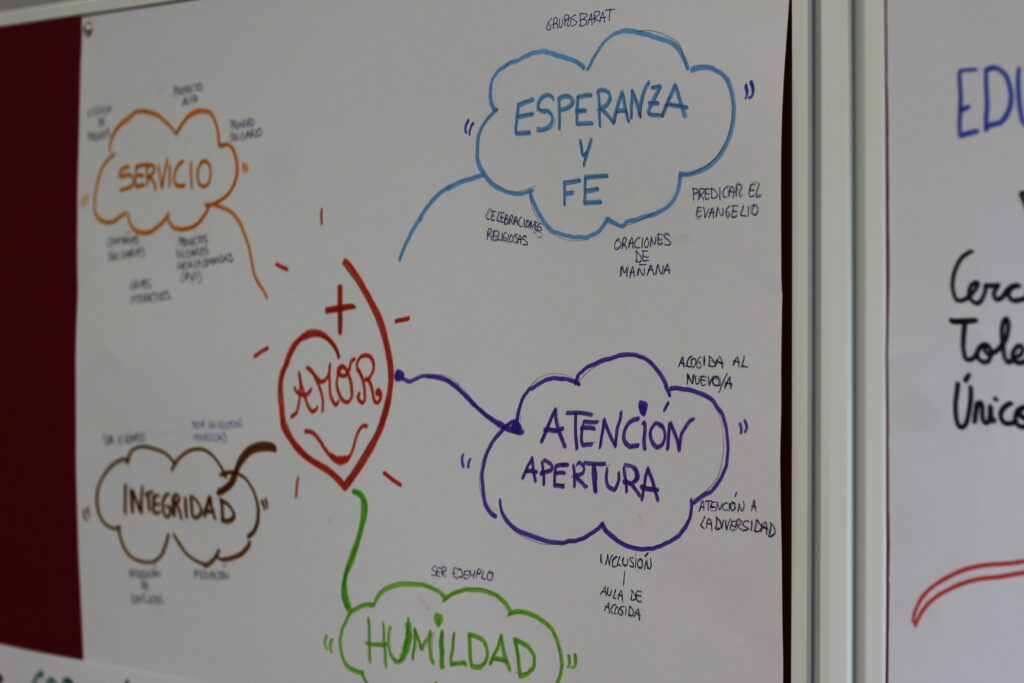 GRUPOS BARAT
ESPERANZA
Y
FE
CELEBRACIONES
RELIGIOSAS
ORACIONES
DE
MAÑANA
PREDICAR EL
EVANGELIO
PROYECTO
SERVICIO
GRUPOS
INTERACTIVOS
+
AMOR
ACOGIDA AL
NUEVO/A
ATENCIÓN
APERTURA
ATENCIÓN A
LA DIVERSIDAD
INCLUSIÓN
AULA DE
ACOGIDA
SER EJEMPLO
INTEGRIDAD
MEDIACIÓN
SER EJEMPLO
HUMILDAD
EDU
Cerc
Tole
Único